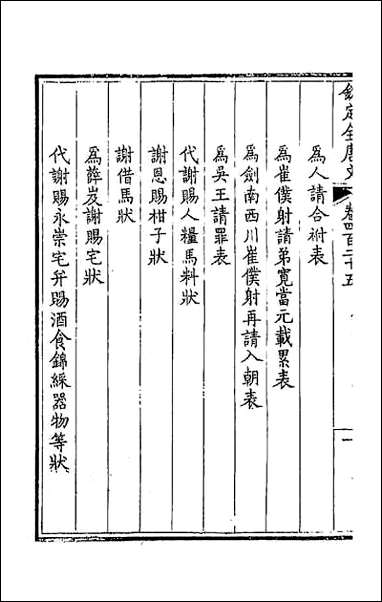 欽定全唐文
卷四百二十五
一
為人請合祔表
為崔僕射請弟寬當元載累表
為劍南西川崔僕射再請入朝表
為吳王請罪表
代謝賜人糧馬料狀
謝恩賜柑子狀
謝借馬狀
為薛岌謝賜宅狀
代謝賜永崇宅并賜酒食錦綵器物等狀